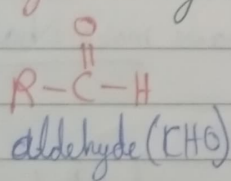 O
R-C-H
aldehyde (CHO)